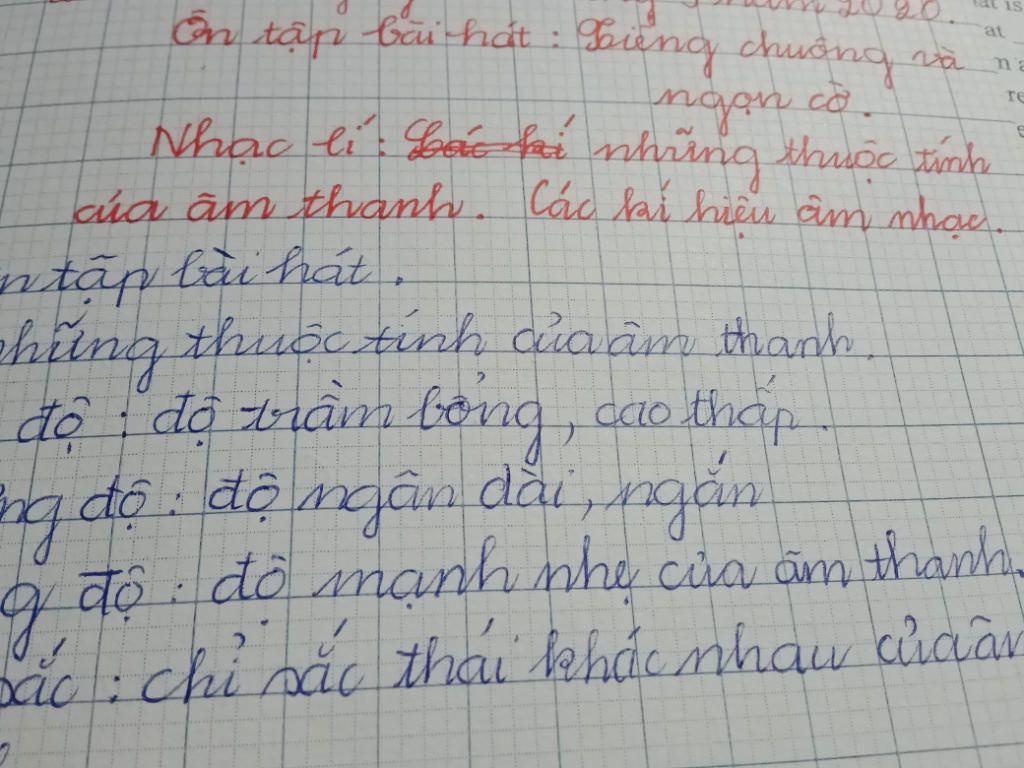 năm 2020.
Ôn tập bài hát: Tiếng chuông và
ngọn cờ.
Nhạc lí: những thuộc tính
của âm thanh. Các kí hiệu âm nhạc.
n tập bài hát.
hững thuộc tính của âm thanh.
độ: độ trầm bổng, cao thấp.
ng độ: độ ngân dài, ngắn
g độ: độ mạnh nhẹ của âm thanh.
sắc: chỉ sắc thái khác nhau của âm
at is
at
n a
re